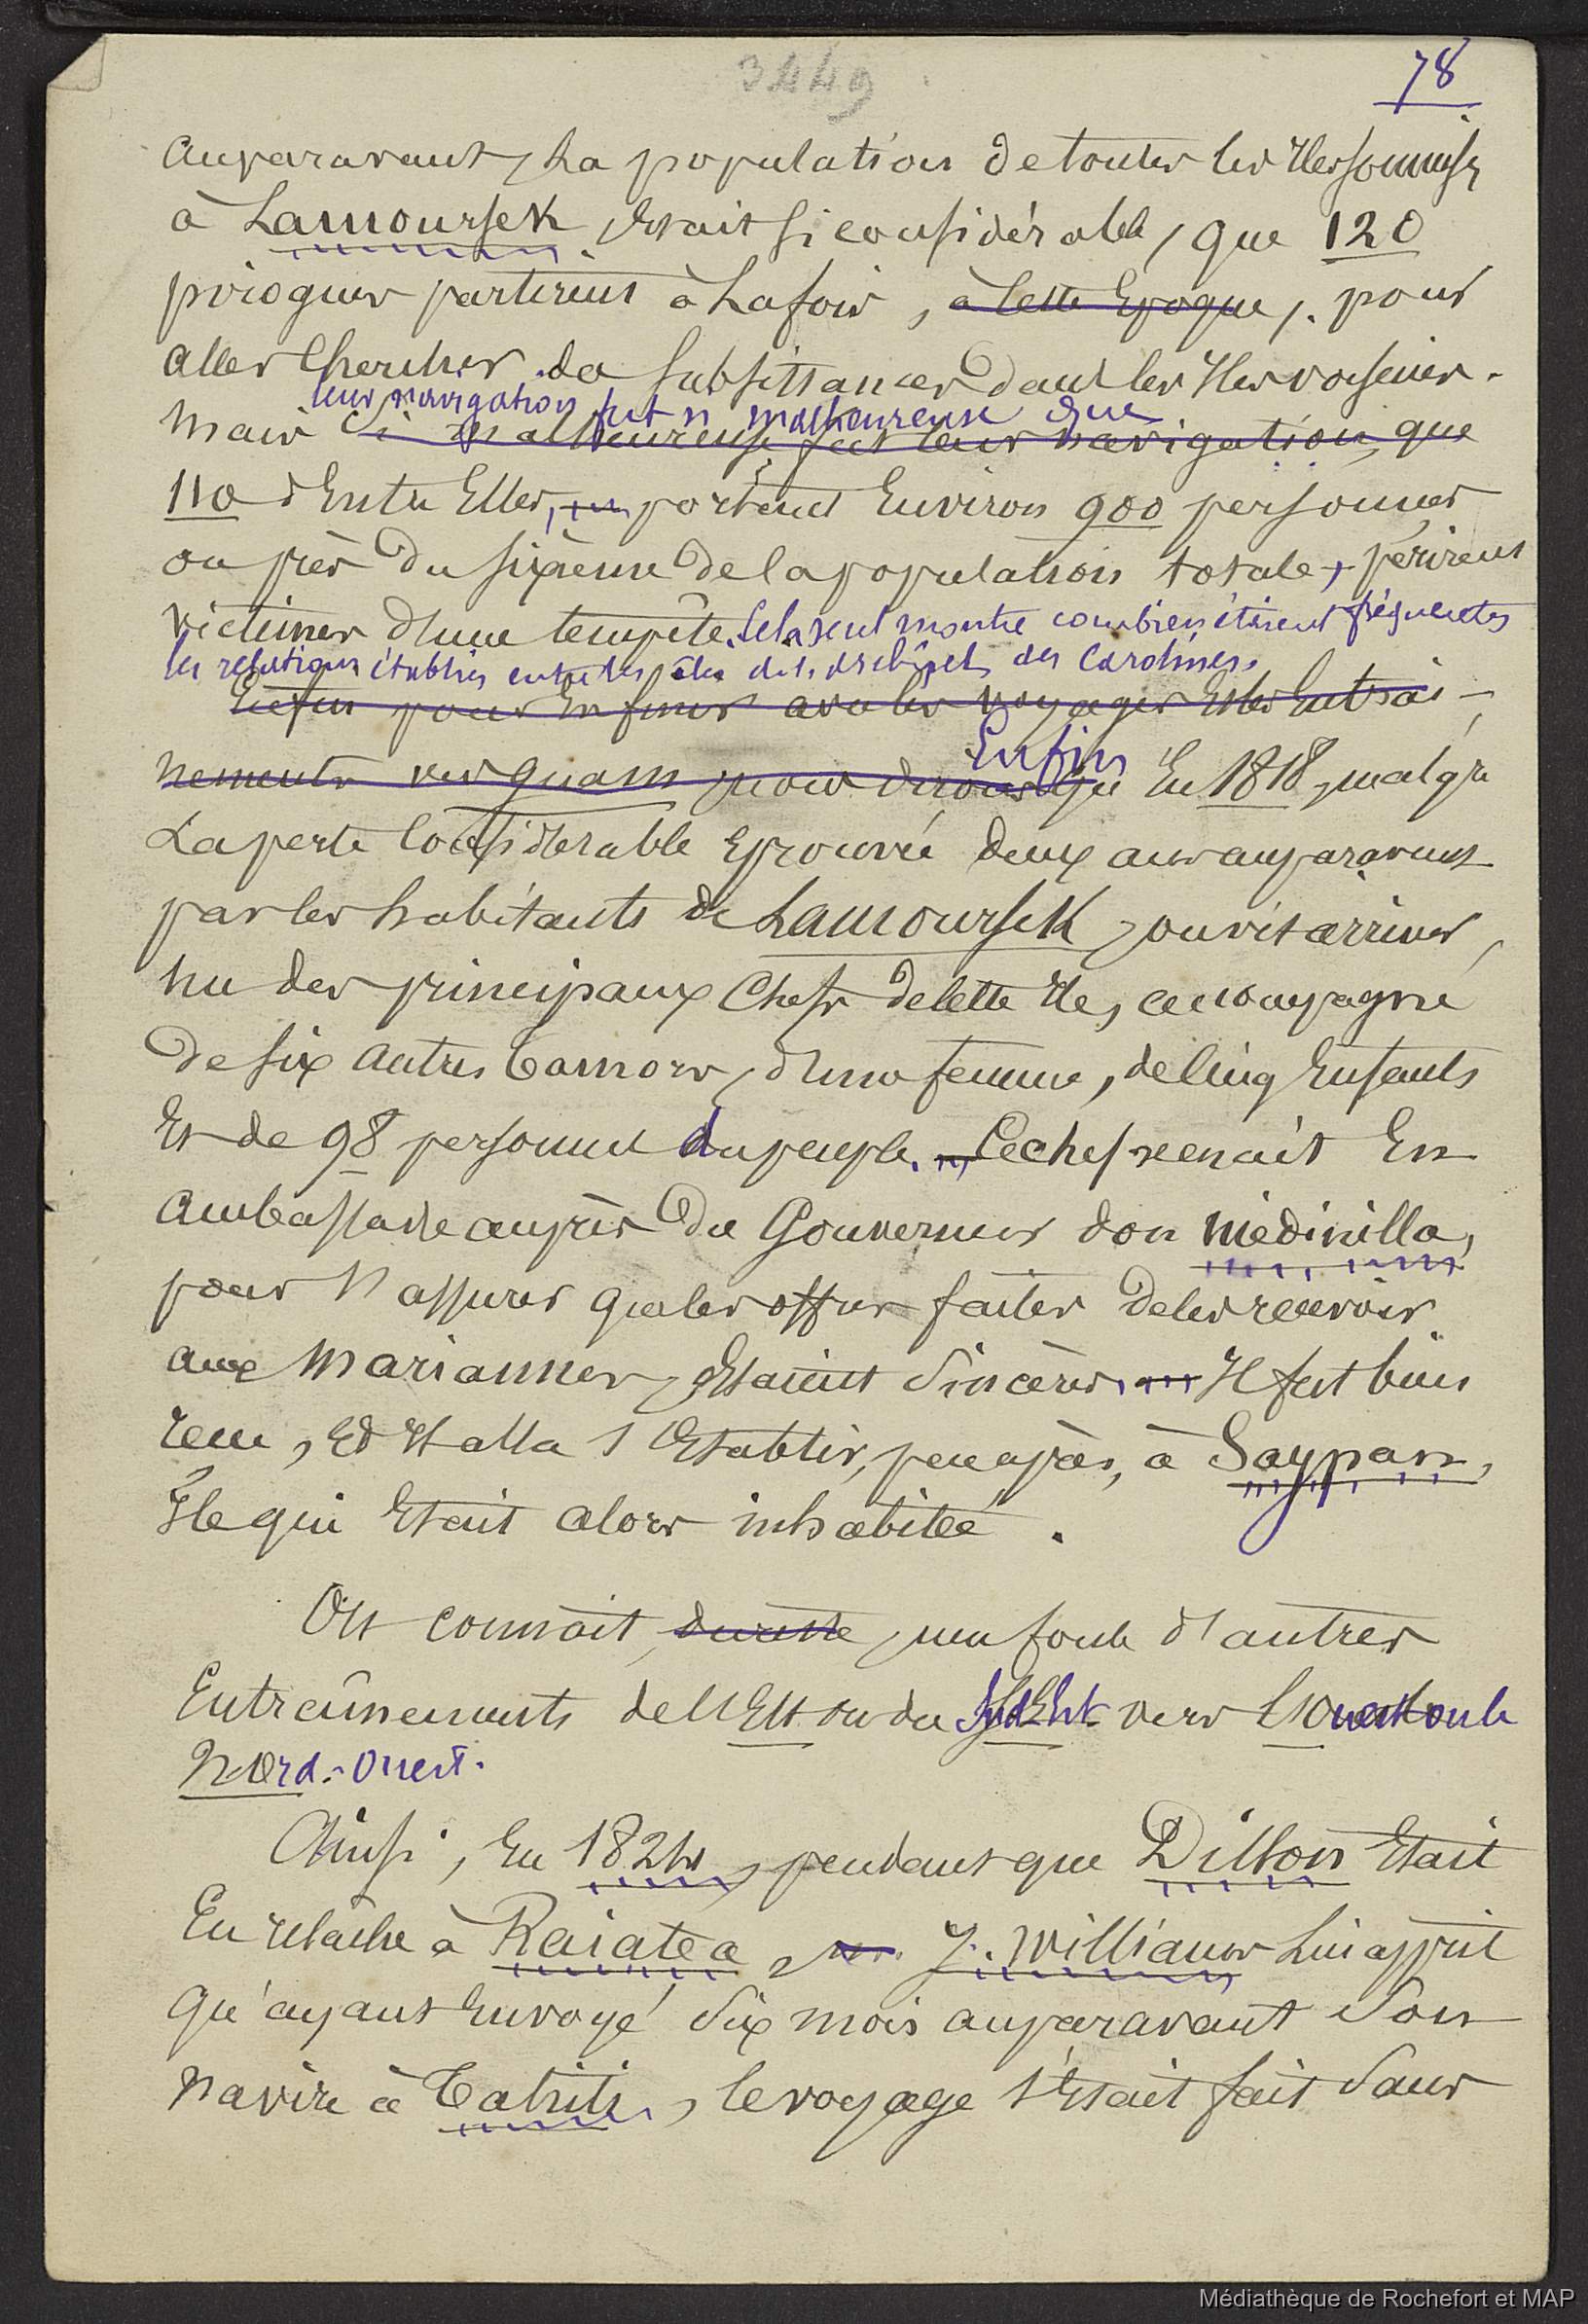 3449
78
auparavant, la population de toutes les Iles soumises
à Lamoursek, était si considérable, que 120
pirogues partirent à la fois, à cette Epoque, pour
aller chercher des subsistances dans les Iles voisines.
leur navigation fut si malheureuse que
Mais si malheureuse fut leur navigation, que
110 d'Entre Elles, portant Environ 900 personnes
ou près du sixième de la population totale, périrent
victimes d'une tempête. Cela seul montre combien étaient fréquentes
les relations établies entre les îles de l'archipel des Carolines.
Enfin pour En finir avec les voyages Et les Entraî-
nements vers Guam nous dirons qu'
Enfin
En 1818, malgré
La perte Considérable Eprouvée deux ans auparavant
par les habitants de Lamoursek, on vit arriver
un des principaux Chefs de cette Ile, accompagné
de six autres Tamors, d'une femme, de cinq Enfants
Et de 98 personnes du peuple. Ce chef venait En
ambassade auprès du Gouverneur don Médinilla,
pour s'assurer que les offres faites de les recevoir
aux Mariannes, Etaient sincères. Il fut bien
reçu, Et Il alla s'Etablir, peu après, à Saypan,
Ile qui Etait alors inhabitée.
On connait, du reste, une foule d'autres
Entraînements de l'Est ou du Sud-Est vers l'Ouest ou le
Nord-Ouest.
Ainsi, En 1824, pendant que Dillon Etait
En relâche à Raiatea, Mr. J. Williams lui apprit
qu'ayant Envoyé six mois auparavant son
navire à Tahiti, le voyage s'Etait fait dans
Médiathèque de Rochefort et MAP